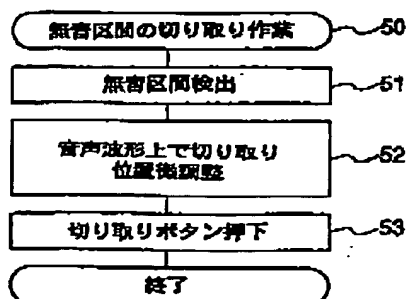 無音区間の切り取り作業 50
無音区間検出 51
音声波形上で切り取り
位置微調整 52
切り取りボタン押下 53
終了